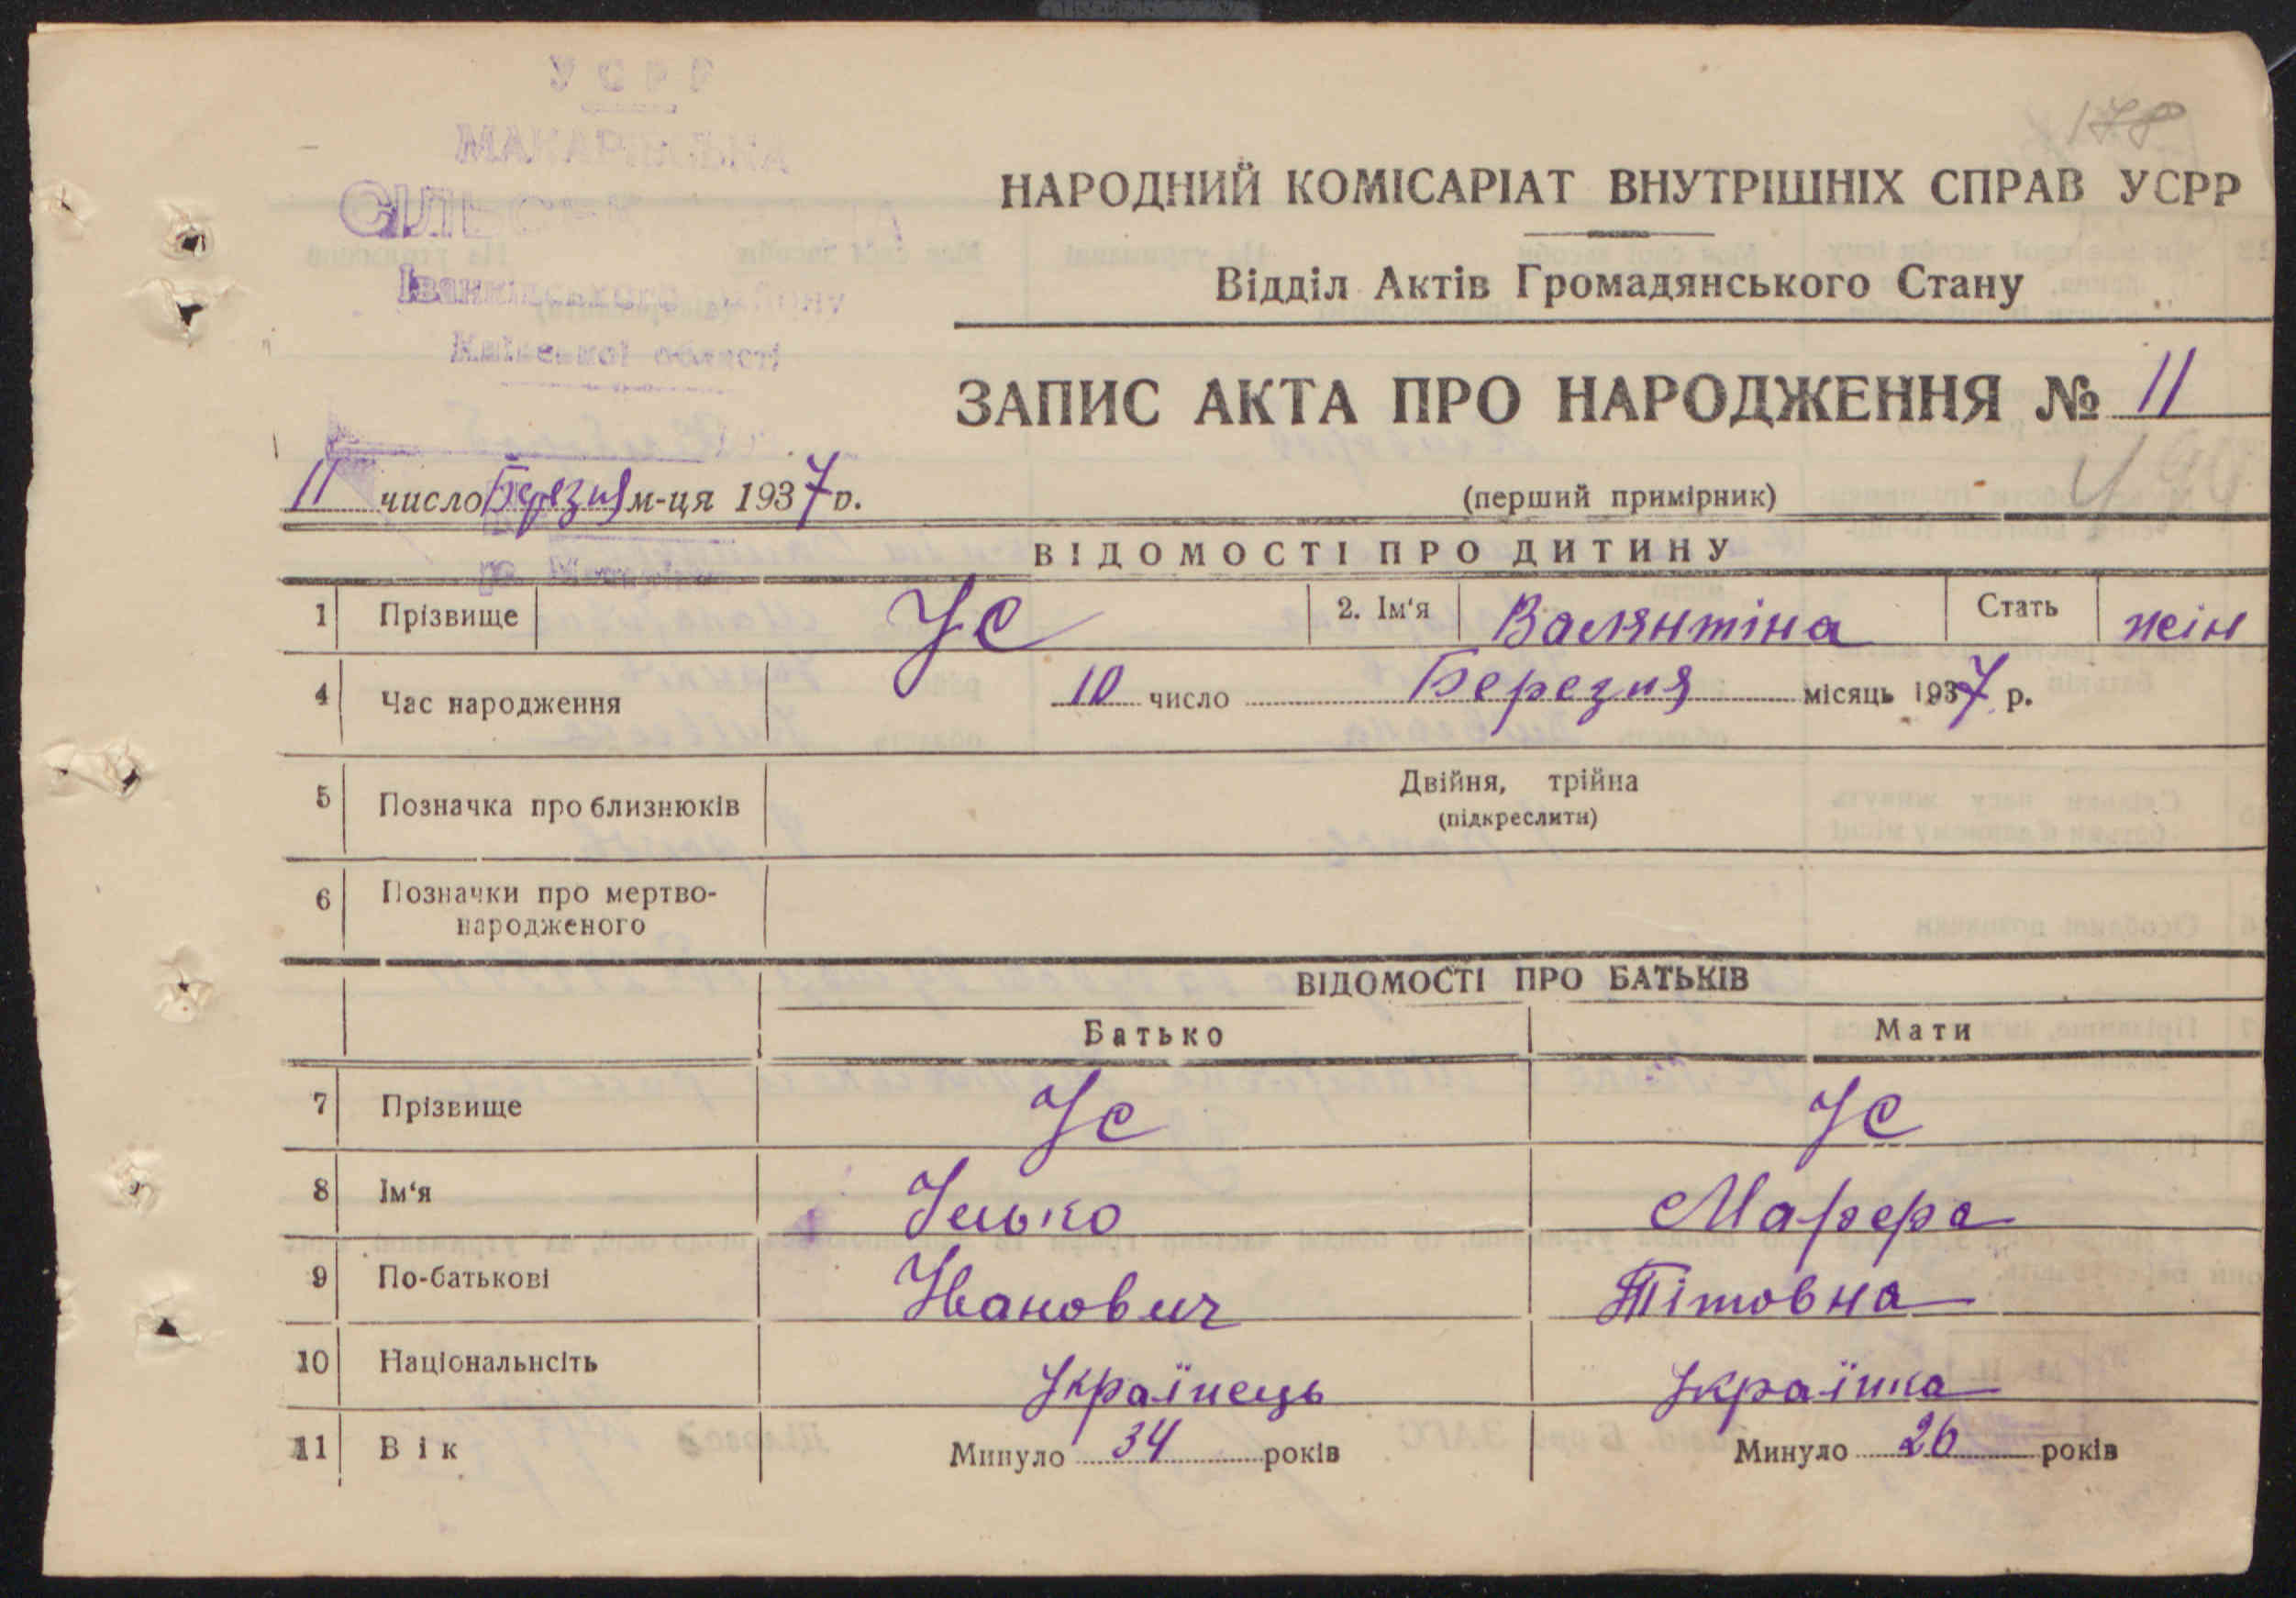 УСРР
МАКАРІВСЬКА
СІЛЬСЬК
Іванківського району
Київської області
178
НАРОДНИЙ КОМІСАРІАТ ВНУТРІШНІХ СПРАВ УСРР
Відділ Актів Громадянського Стану
ЗАПИС АКТА ПРО НАРОДЖЕННЯ № 11
11 число Березня м-ця 1937 р.
(перший примірник)
ВІДОМОСТІ ПРО ДИТИНУ
1 Прізвище Ус 2. Ім'я Валянтіна Стать жін
4 Час народження 10 число Березня місяць 1937 р.
5 Позначка про близнюків Двійня, трійна
(підкреслити)
6 Позначки про мертво-
народженого
ВІДОМОСТІ ПРО БАТЬКІВ
Батько Мати
7 Прізвище Ус Ус
8 Ім'я Ілько
9 По-батькові Іванович Тітовна
10 Національнсіть Українець Українка
11 Вік Минуло 34 років Минуло 26 років